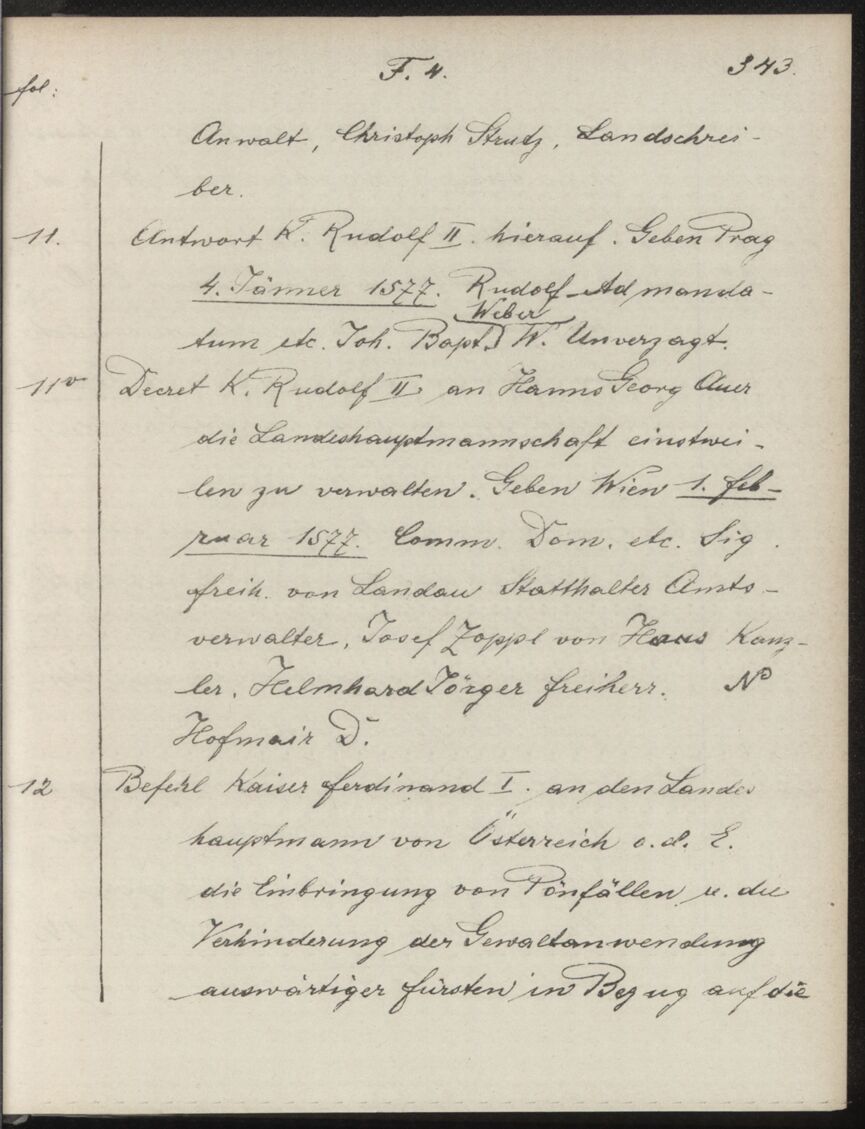 F. 4. 343.
fol:
Anwalt, Christoph Strutz, Landschrei-
ber.
11. Antwort K. Rudolf II. hierauf. Geben Prag
4. Jänner 1577. Rudolf Ad manda-
Weber
tum etc. Joh. Bapt. W. Unverzagt.
11v Decret K. Rudolf II an Hanns Georg Auer
die Landeshauptmannschaft einstwei-
len zu verwalten. Geben Wien 1. Feb-
ruar 1577. Comm. Dom. etc. Sig.
Freih. von Landau Statthalter Amts-
verwalter, Josef Zoppl von Haus Kanz-
ler, Helmhard Jörger Freiherr. N
Hofmair D.
12 Befehl Kaiser Ferdinand I. an den Landes
hauptmann von Österreich o. d. E.
die Einbringung von Pönfällen u. die
Verhinderung der Gewaltanwendung
auswärtiger Fürsten in Bezug auf die